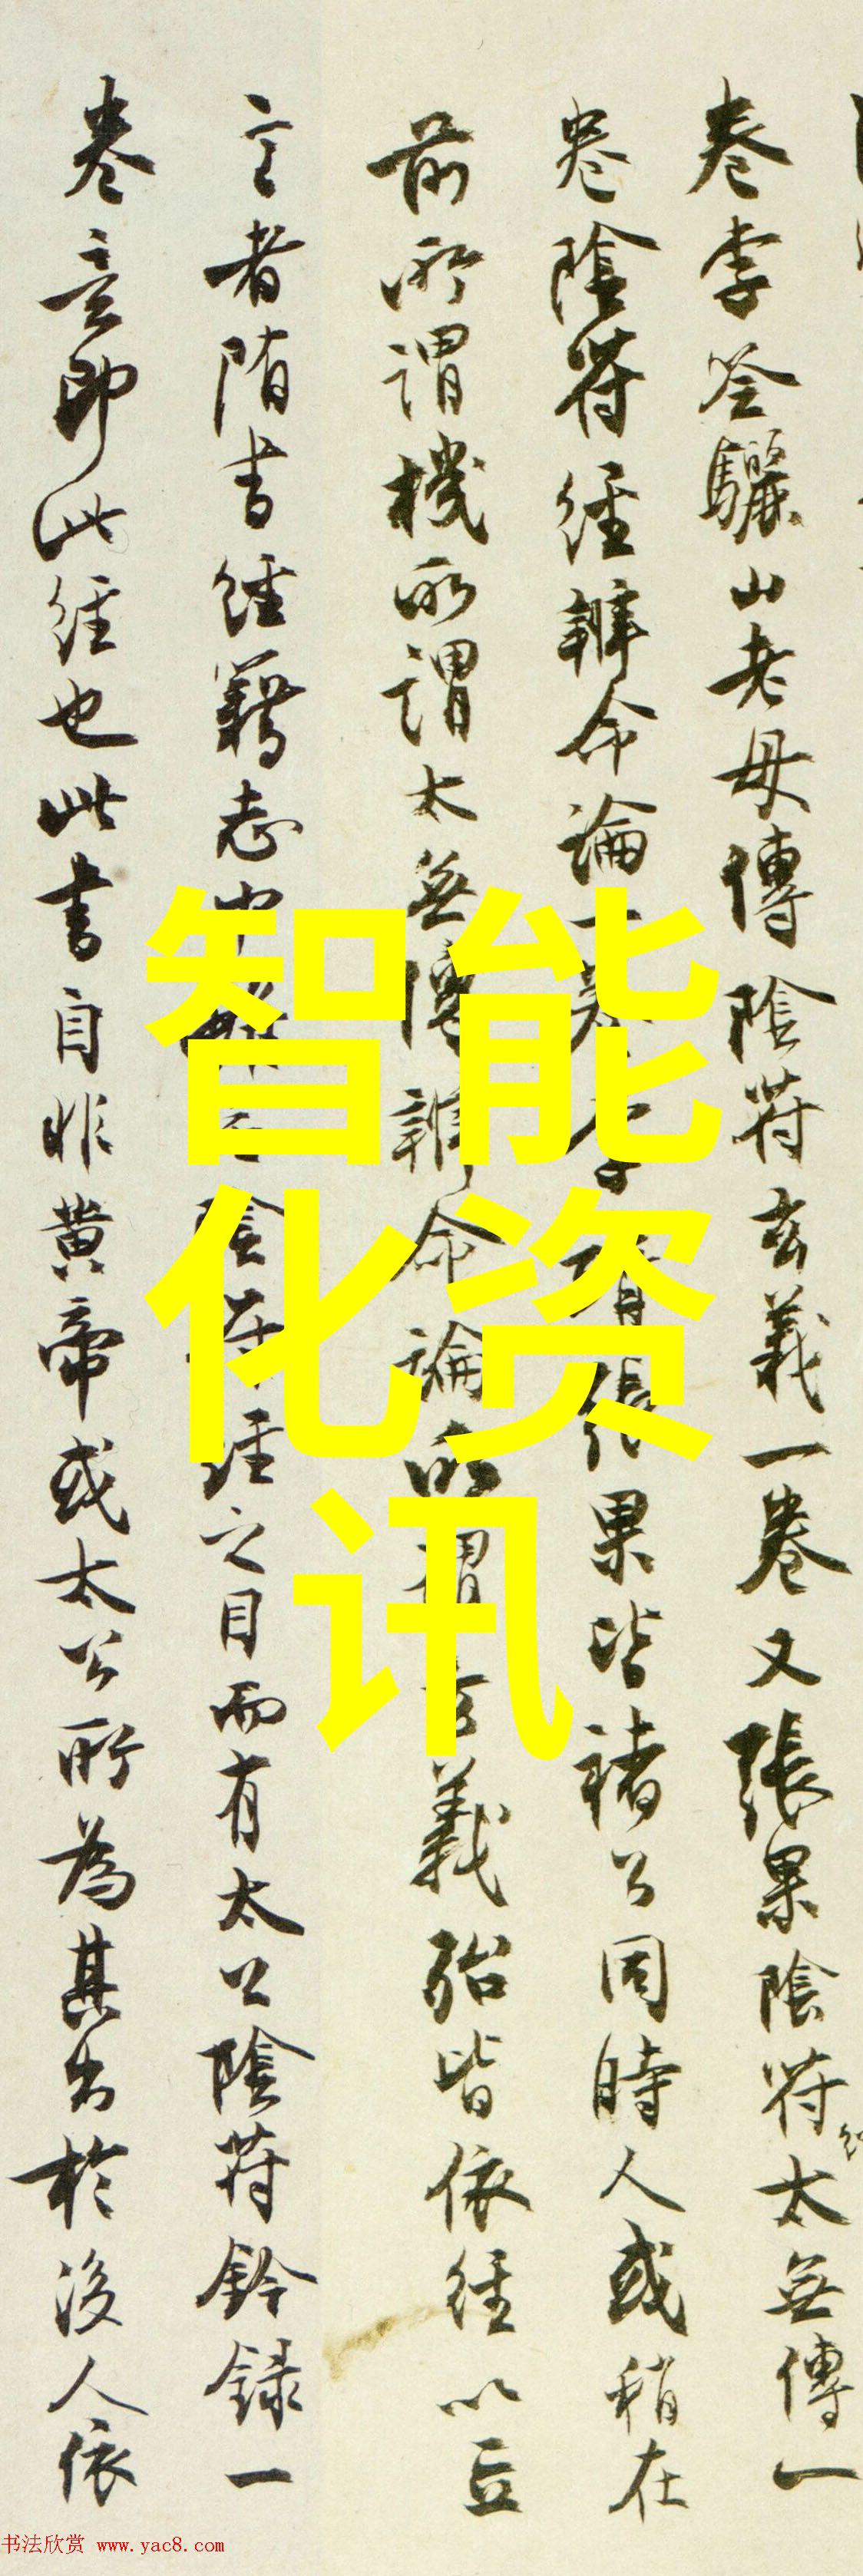 卷李筌驪山老母傳陰符玄義一卷又張果陰符太無傳一
卷陰符經辨命論一卷李張果皆褚公同時人或稍在
前所謂機所謂太無傳辨命論所謂玄義殆皆依經以立
言者隋書經籍志中陰符經之目而有太公陰符鈐録一
卷意即此經也此書自非黄帝或太公所為其出於後人依
智能
化资
讯
书法欣赏 www.yac8.com